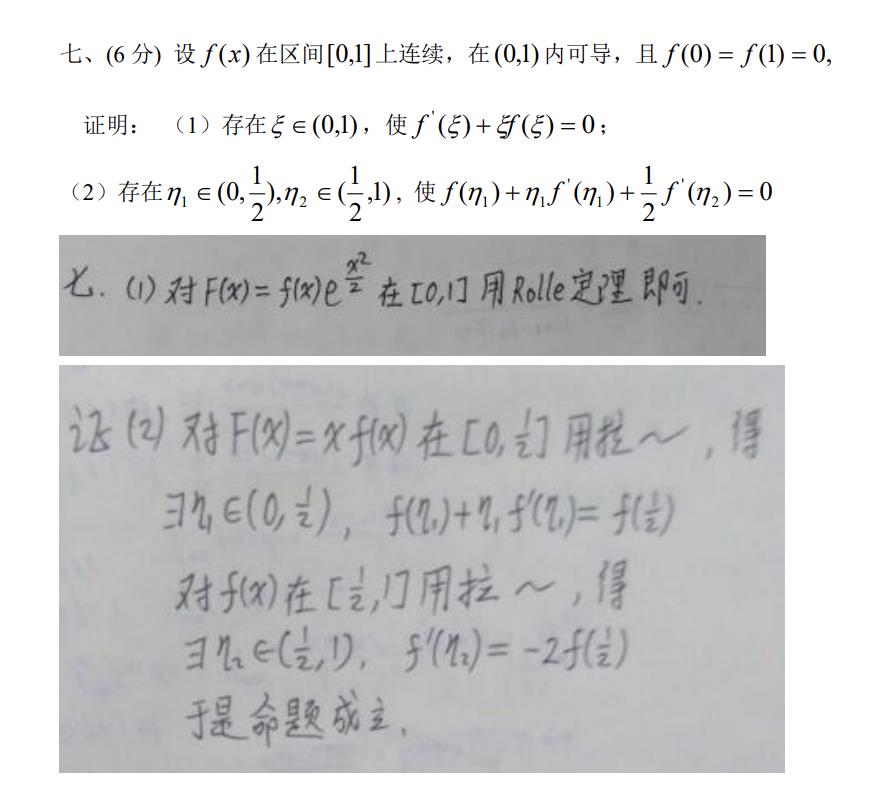 七、(6 分) 设 f(x) 在区间[0,1]上连续，在(0,1)内可导，且 f(0) = f(1) = 0,
证明： （1）存在 ξ ∈ (0,1)，使 f'(ξ) + ξf(ξ) = 0；
（2）存在 η₁ ∈ (0, 1/2), η₂ ∈ (1/2, 1)，使 f(η₁) + η₁f'(η₁) + 1/2 f'(η₂) = 0
七. (1) 对 F(x) = f(x)e^(x²/2) 在 [0,1] 用 Rolle 定理 即可.
证 (2) 对 F(x) = x f(x) 在 [0, 1/2] 用拉～，得
∃η₁ ∈ (0, 1/2), f(η₁) + η₁ f'(η₁) = f(1/2)
对 f(x) 在 [1/2, 1] 用拉～，得
∃η₂ ∈ (1/2, 1), f'(η₂) = -2f(1/2)
于是命题成立.